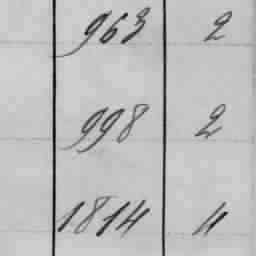 963 2
998 2
1814 4